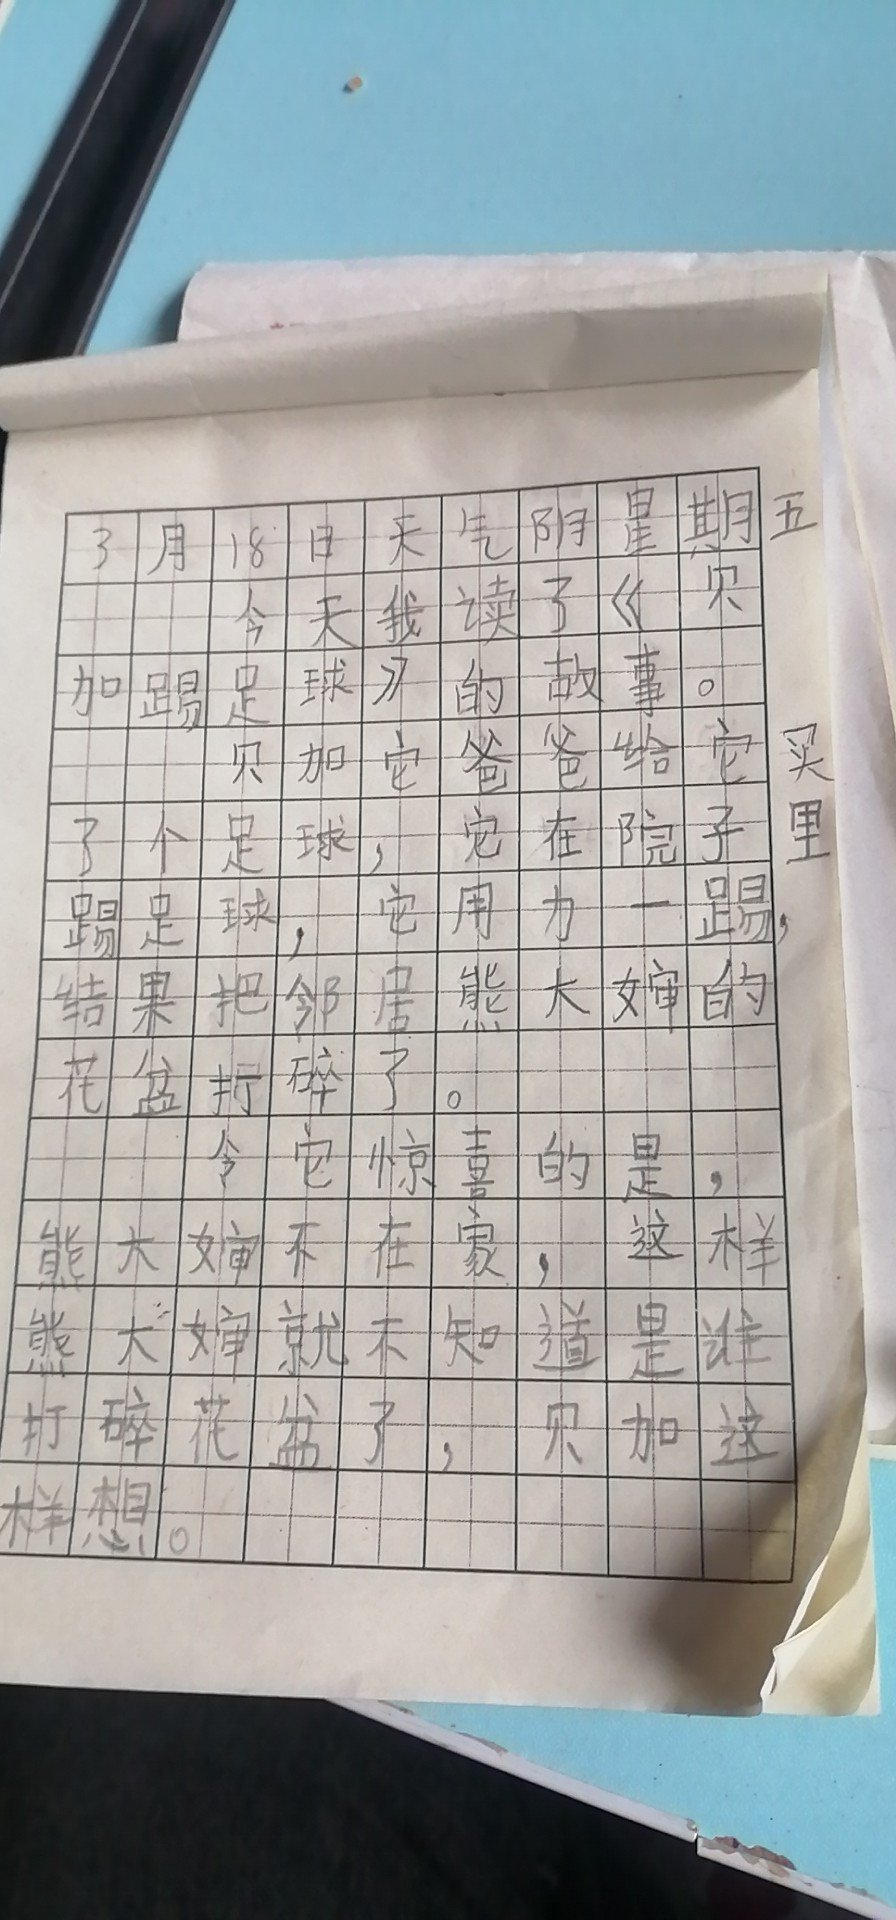 3月18日天气阴星期五
今天我读了《贝
加踢足球》的故事。
贝加它爸爸给它买
了个足球，它在院子里
踢足球，它用力一踢，
结果把邻居熊大婶的
花盆打碎了。
令它惊喜的是，
熊大婶不在家，这样
熊大婶就不知道是谁
打碎花盆了，贝加这
样想。